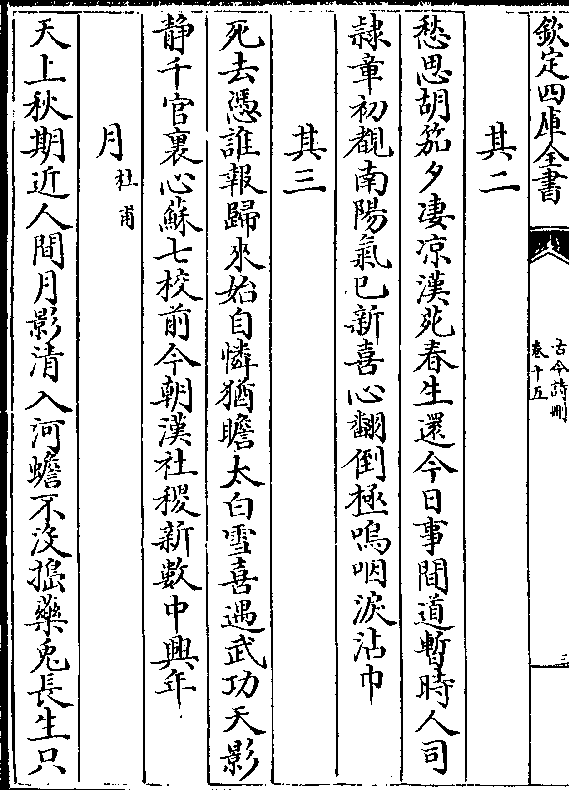 欽定四庫全書
古今詩刪
卷十五
三
其二
愁思胡笳夕凄凉漢苑春生還今日事間道暫時人司
隷章初覩南陽氣已新喜心翻倒極嗚咽淚沾巾
其三
死去憑誰報歸來始自憐猶瞻太白雪喜遇武功天影
静千官裏心蘇七校前今朝漢社稷新數中興年
月 杜甫
天上秋期近人間月影清入河蟾不沒搗藥兎長生只